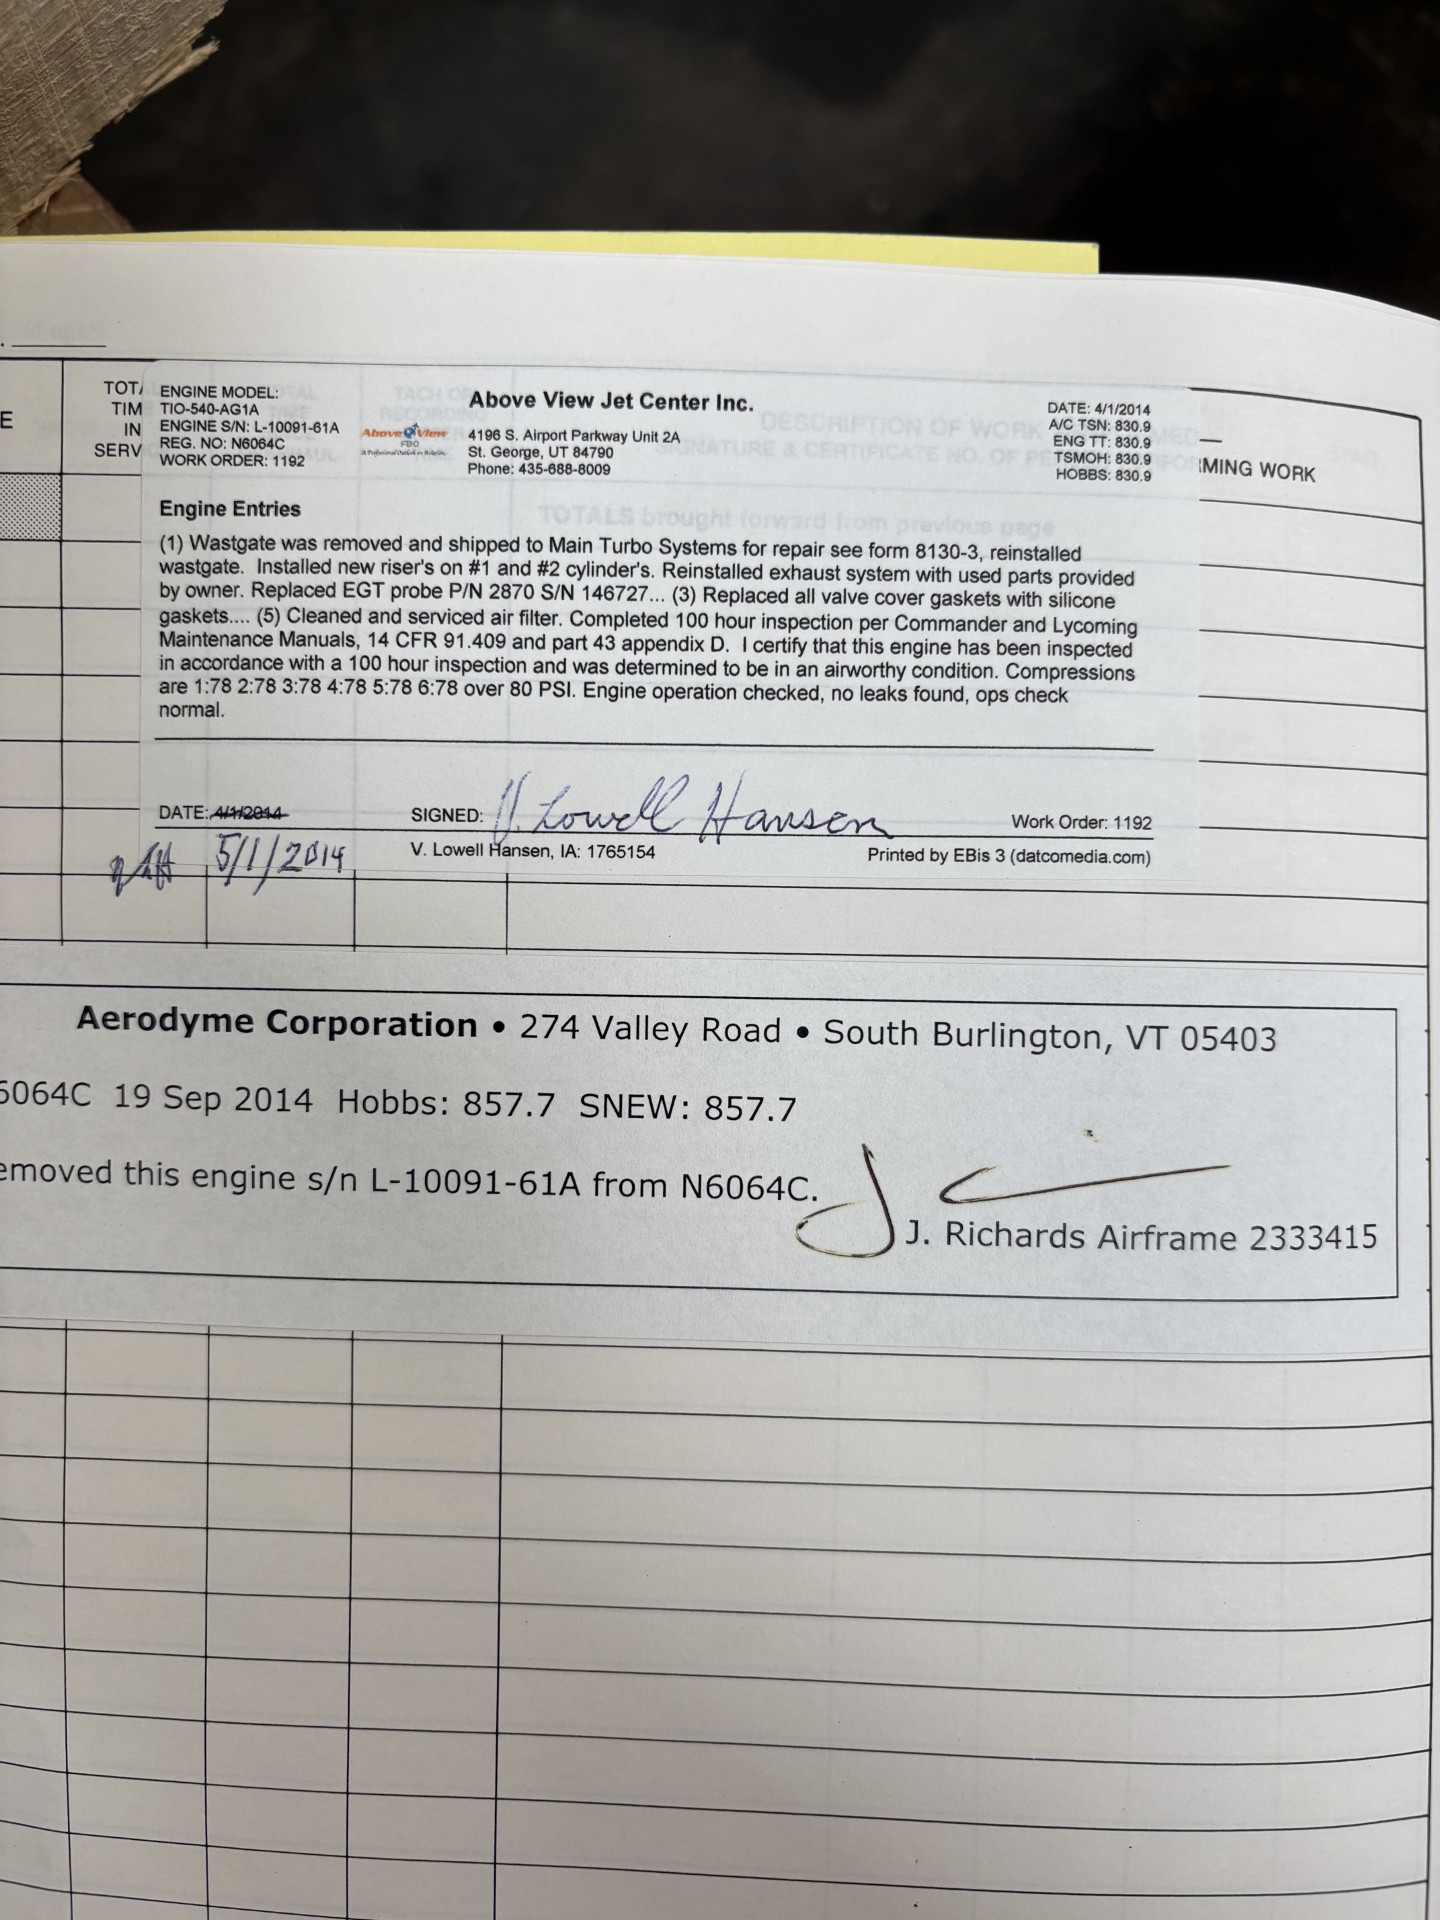 E
TOT
TIM
IN
SERV
ENGINE MODEL:
TIO-540-AG1A
ENGINE S/N: L-10091-61A
REG. NO: N6064C
WORK ORDER: 1192
Above View
FBO
Above View Jet Center Inc.
4196 S. Airport Parkway Unit 2A
St. George, UT 84790
Phone: 435-688-8009
DATE: 4/1/2014
A/C TSN: 830.9
ENG TT: 830.9
TSMOH: 830.9
HOBBS: 830.9
MING WORK
DESCRIPTION OF WORK
SIGNATURE & CERTIFICATE NO. OF
TOTALS brought forward from previous page
Engine Entries
(1) Wastgate was removed and shipped to Main Turbo Systems for repair see form 8130-3, reinstalled
wastgate. Installed new riser's on #1 and #2 cylinder's. Reinstalled exhaust system with used parts provided
by owner. Replaced EGT probe P/N 2870 S/N 146727... (3) Replaced all valve cover gaskets with silicone
gaskets.... (5) Cleaned and serviced air filter. Completed 100 hour inspection per Commander and Lycoming
Maintenance Manuals, 14 CFR 91.409 and part 43 appendix D. I certify that this engine has been inspected
in accordance with a 100 hour inspection and was determined to be in an airworthy condition. Compressions
are 1:78 2:78 3:78 4:78 5:78 6:78 over 80 PSI. Engine operation checked, no leaks found, ops check
normal.
DATE: 4/1/2014
SIGNED: V. Lowell Hansen
Work Order: 1192
5/1/2014
V. Lowell Hansen, IA: 1765154
Printed by EBis 3 (datcomedia.com)
Aerodyme Corporation • 274 Valley Road • South Burlington, VT 05403
6064C 19 Sep 2014 Hobbs: 857.7 SNEW: 857.7
emoved this engine s/n L-10091-61A from N6064C.
J. Richards Airframe 2333415